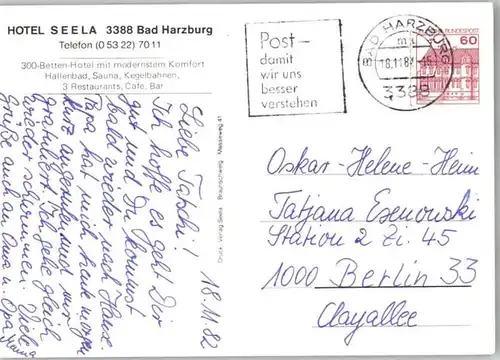 HOTEL SEELA 3388 Bad Harzburg
Telefon (0 53 22) 70 11
300-Betten-Hotel mit modernstem Komfort
Hallenbad, Sauna, Kegelbahnen,
3 Restaurants, Cafe, Bar
Post-
damit
wir uns
besser
verstehen
BAD HARZBURG
18.11.82
3388
BUNDESPOST
60
18.11.82
Liebe Tapschi!
Ich hoffe es geht Dir
gut und Du kommst
bald wieder nach Hause.
Papa hat mich heute morgen
kurz angerufen und mir
gratuliert. Ich gehe gleich
wieder schwimmen. Viele
Grüße auch an Oma u. Opa
Oskar-Helene-Heim
Tatjana Esenowski
Station 2 Zi. 45
1000 Berlin 33
Clayallee